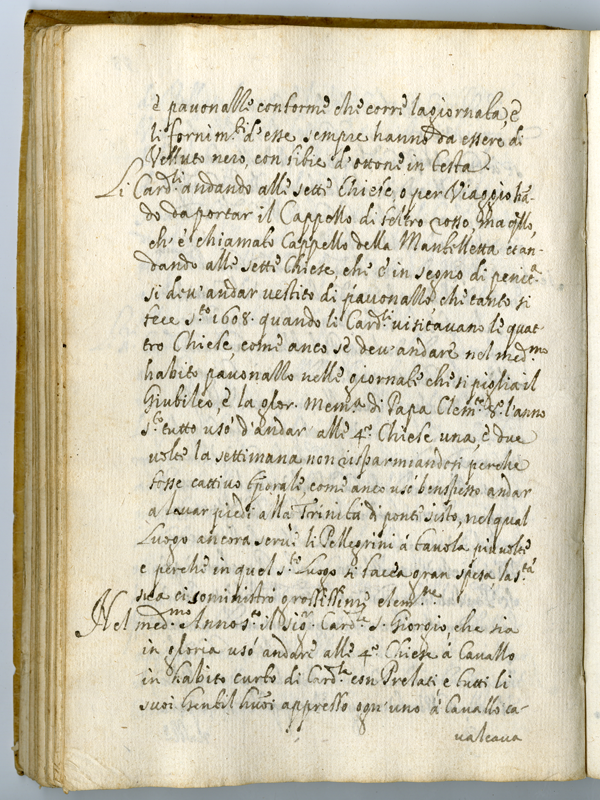 è pauonasse conforme che corre la giornata, è
li fornim.ti d'esse sempre hanno da essere di
Velluto nero, con fibie d'ottone in testa.
Li Card.li andando alle sette Chiese, o per Viaggio hã-
do da portar il Cappello di feltro rosso, ma q̃llo,
ch' è chiamato Cappello della Mantelletta et an-
dando alle sette Chiese, che è in segno di penit.a
si deu' andar uestito di pauonallo, che tanto si
fece s.to 1608. quando li Card.li uisitauano le quat
tro Chiese, come anco se deu' andare nel med.mo
habito pauonallo nelle giornate che si piglia il
Giubileo, è la glor. mem.a di Papa Clem.te 8.o l'anno
s.to tutto usò d'andar alle 4.o Chiese una, è due
uolte la settimana non risparmiandosi perche
fosse cattiuo tempo, come anco usò benspesso andar
a lauar piedi alla Trinità di ponte sisto, nel qual
Luogo ancora seruì li Pellegrini à tauola piu uolte
e perche in quel s.to Luogo si facea gran spesa la s.tà
sua ci sominístrò grossissime elem.ne
Nel med.mo Anno s.to il sig.r Card.le S. Giorgio, che sia
in gloria usò andare alle 4.o Chiese à Cauallo
in habito curto di Card.le con Prelati e tutti li
suoi Gentil'huõi appresso ogn' uno à Cauallo ca-
ualcaua